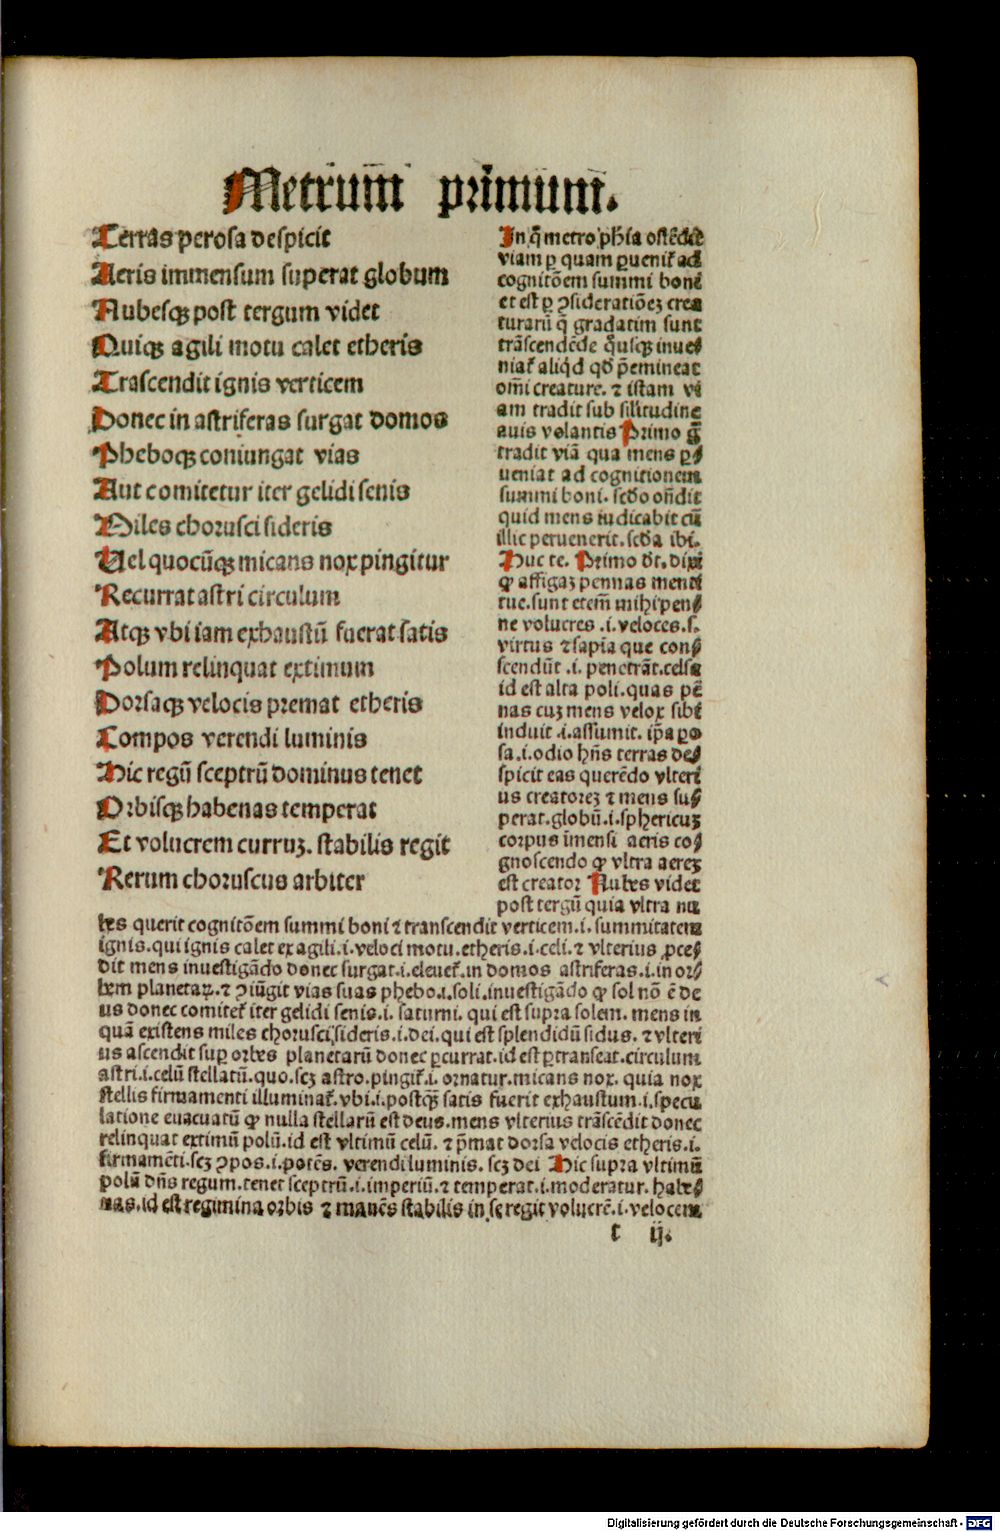 Metrum̄ prīmum̄.
Terras perosa despicit
Aeris immensum superat globum
Nubesqȝ post tergum videt
Quiqȝ agili motu calet etheris
Trascendit ignis verticem
Donec in astriferas surgat domos
Pheboqȝ coniungat vias
Aut comitetur iter gelidi senis
Miles chorusci sideris
Uel quocūqȝ micans nox pingitur
Recurrat astri circulum
Atqȝ vbi iam exhaustū fuerat satis
Polum relinquat extimum
Dorsaqȝ velocis premat etheris
Compos verendi luminis
Hic regū sceptrū dominus tenet
Orbisqȝ habenas temperat
Et volucrem curruȝ. stabilis regit
Rerum choruscus arbiter
In q̄ metro ph̄ia ostēdit
viam ꝑ quam ꝑueniť ad
cognitōem summi boni
et est ꝑ ꝯsideratiōeȝ crea
turarū q̄ gradatim sunt
trāscendēde qͥusqȝ inue⸗
niať aliqͥd qď p̄emineat
om̄i creature. ⁊ istam vi
am tradit sub sil̄itudine
auis volantis Primo g̊
tradit viā qua mens ꝑ⸗
ueniat ad cognitionem
summi boni. scďo on̄dit
quid mens iudicabit cū
illic peruenerit. scďa ibi.
Huc te. Primo dc̄t. dixi
ꝙ affigaȝ pennas menti
tue. sunt etem̄ mihi pen⸗
ne volucres .i. veloces. s.
virtus ⁊ sapīa que con⸗
scendūt .i. penetrāt. celsa
id est alta poli. quas pē
nas cuȝ mens velox sibi
induit .i. assumit. ip̄a ꝑo
sa .i. odio hn̄s terras de⸗
spicit eas querēdo vlteri
us creatoreȝ ⁊ mens su⸗
perat. globū .i. sphericuȝ
corpus īmensi aeris co⸗
gnoscendo ꝙ vltra aereȝ
est creator Nubes videt
post tergū quia vltra nu
bes querit cognitōem summi boni ⁊ transcendit verticem .i. summitatem
ignis. qui ignis calet ex agili .i. veloci motu. etheris .i. celi. ⁊ vlterius ꝓce⸗
dit mens inuestigādo donec surgat .i. eleueť. in domos astriferas .i. in or⸗
bem planetaꝝ. ⁊ ꝯiūgit vias suas phebo .i. soli. inuestigādo ꝙ sol nō ē de
us donec comiteť iter gelidi senis .i. saturni. qui est supra solem. mens in
quā existens miles chorusci sideris .i. dei. qui est splendidū sidus. ⁊ vlteri
us ascendit suꝑ orbes planetarū donec ꝑcurrat. id est ꝑtranseat. circulum
astri .i. celū stellatū. quo. scȝ astro. pingiť .i. ornatur. micans nox. quia nox
stellis firmamenti illuminať. vbi .i. postqȝ̄ satis fuerit exhaustum .i. specu
latione euacuatū ꝙ nulla stellarū est deus. mens vlterius trāscēdit donec
relinquat extimū polū. id est vltimū celū. ⁊ p̄mat dorsa velocis etheris .i.
firmamēti. scȝ ꝯpos .i. potēs. verendi luminis. scȝ dei Hic supra vltimū
polū dn̄s regum. tenet sceptrū .i. imperiū. ⁊ temperat .i. moderatur. habe⸗
nas. id est regimina orbis ⁊ manēs stabilis in se regit volucrē .i. velocem
t ij.
Digitalisierung gefördert durch die Deutsche Forschungsgemeinschaft - DFG